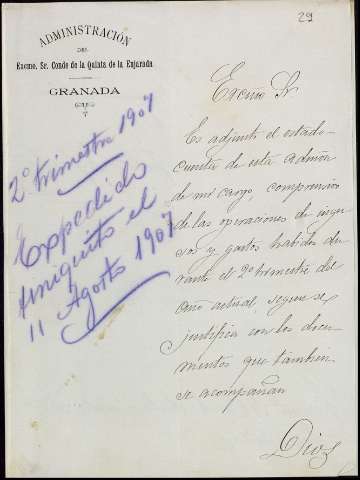 29
ADMINISTRACIÓN
DEL
Excmo. Sr. Conde de la Quinta de la Enjarada
GRANADA
2º trimestre 1907
Expedido
finiquito el
11 Agosto 1907
Excmo Sr
Es adjunto el estado-
cuenta de esta admón
de mi cargo, comprensivo
de las operaciones de ingre
sos y gastos habidos du
rante el 2º trimestre del
año actual, segun se
justifica con los docu
mentos que tambien
se acompañan
Dios